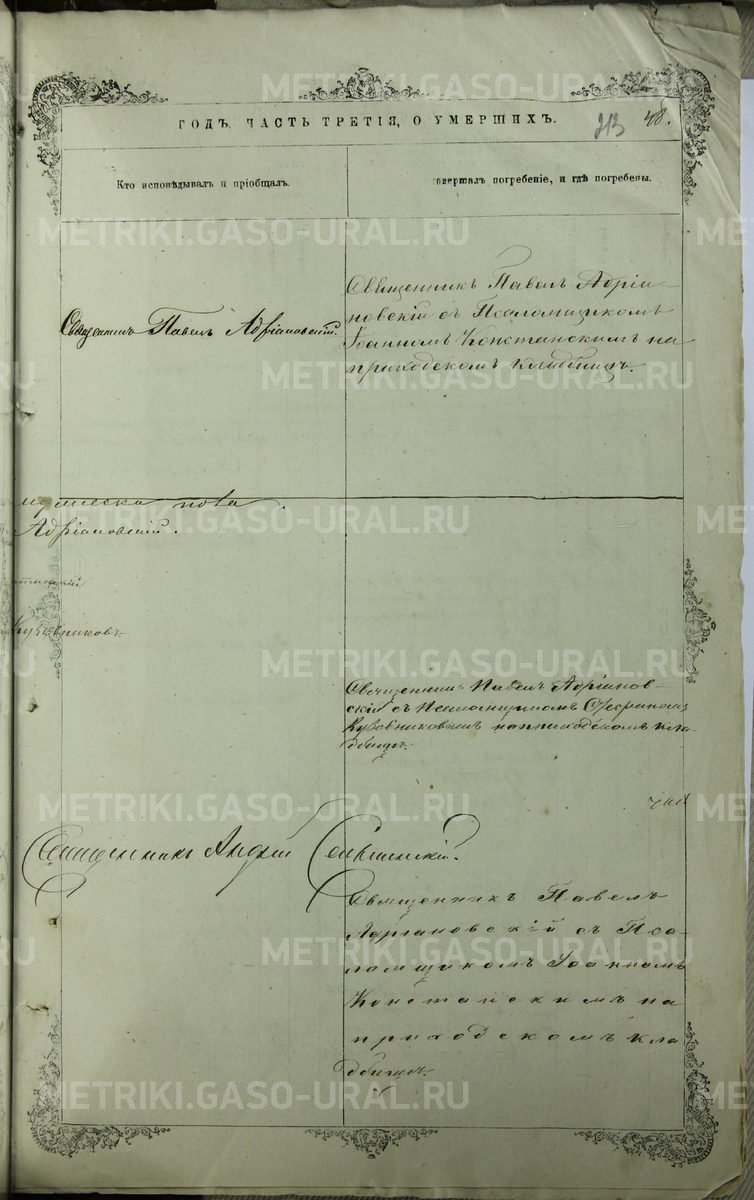 METRIKI.GASO-URAL.RU
ГОДЪ, ЧАСТЬ ТРЕТІЯ, О УМЕРШИХЪ.
213
48.
Кто исповѣдывалъ и пріобщалъ.
овершалъ погребеніе, и гдѣ погребены.
Священникъ Павелъ Адріановскій
Священникъ Павелъ Адріа-
новскій съ Псаломщикомъ
Іоанномъ Констанскимъ на
приходскомъ кладбищѣ.
Адріановскій.
Кузовниковъ.
Священникъ Павелъ Адріанов-
скій съ Псаломщикомъ
Кузовниковымъ на приходскомъ кла-
дбищѣ.
Священникъ Андрей
Священникъ Павелъ
Адріановскій съ Пса-
ломщикомъ Іоанномъ
Констанскимъ на
приходскомъ кла
дбищѣ.